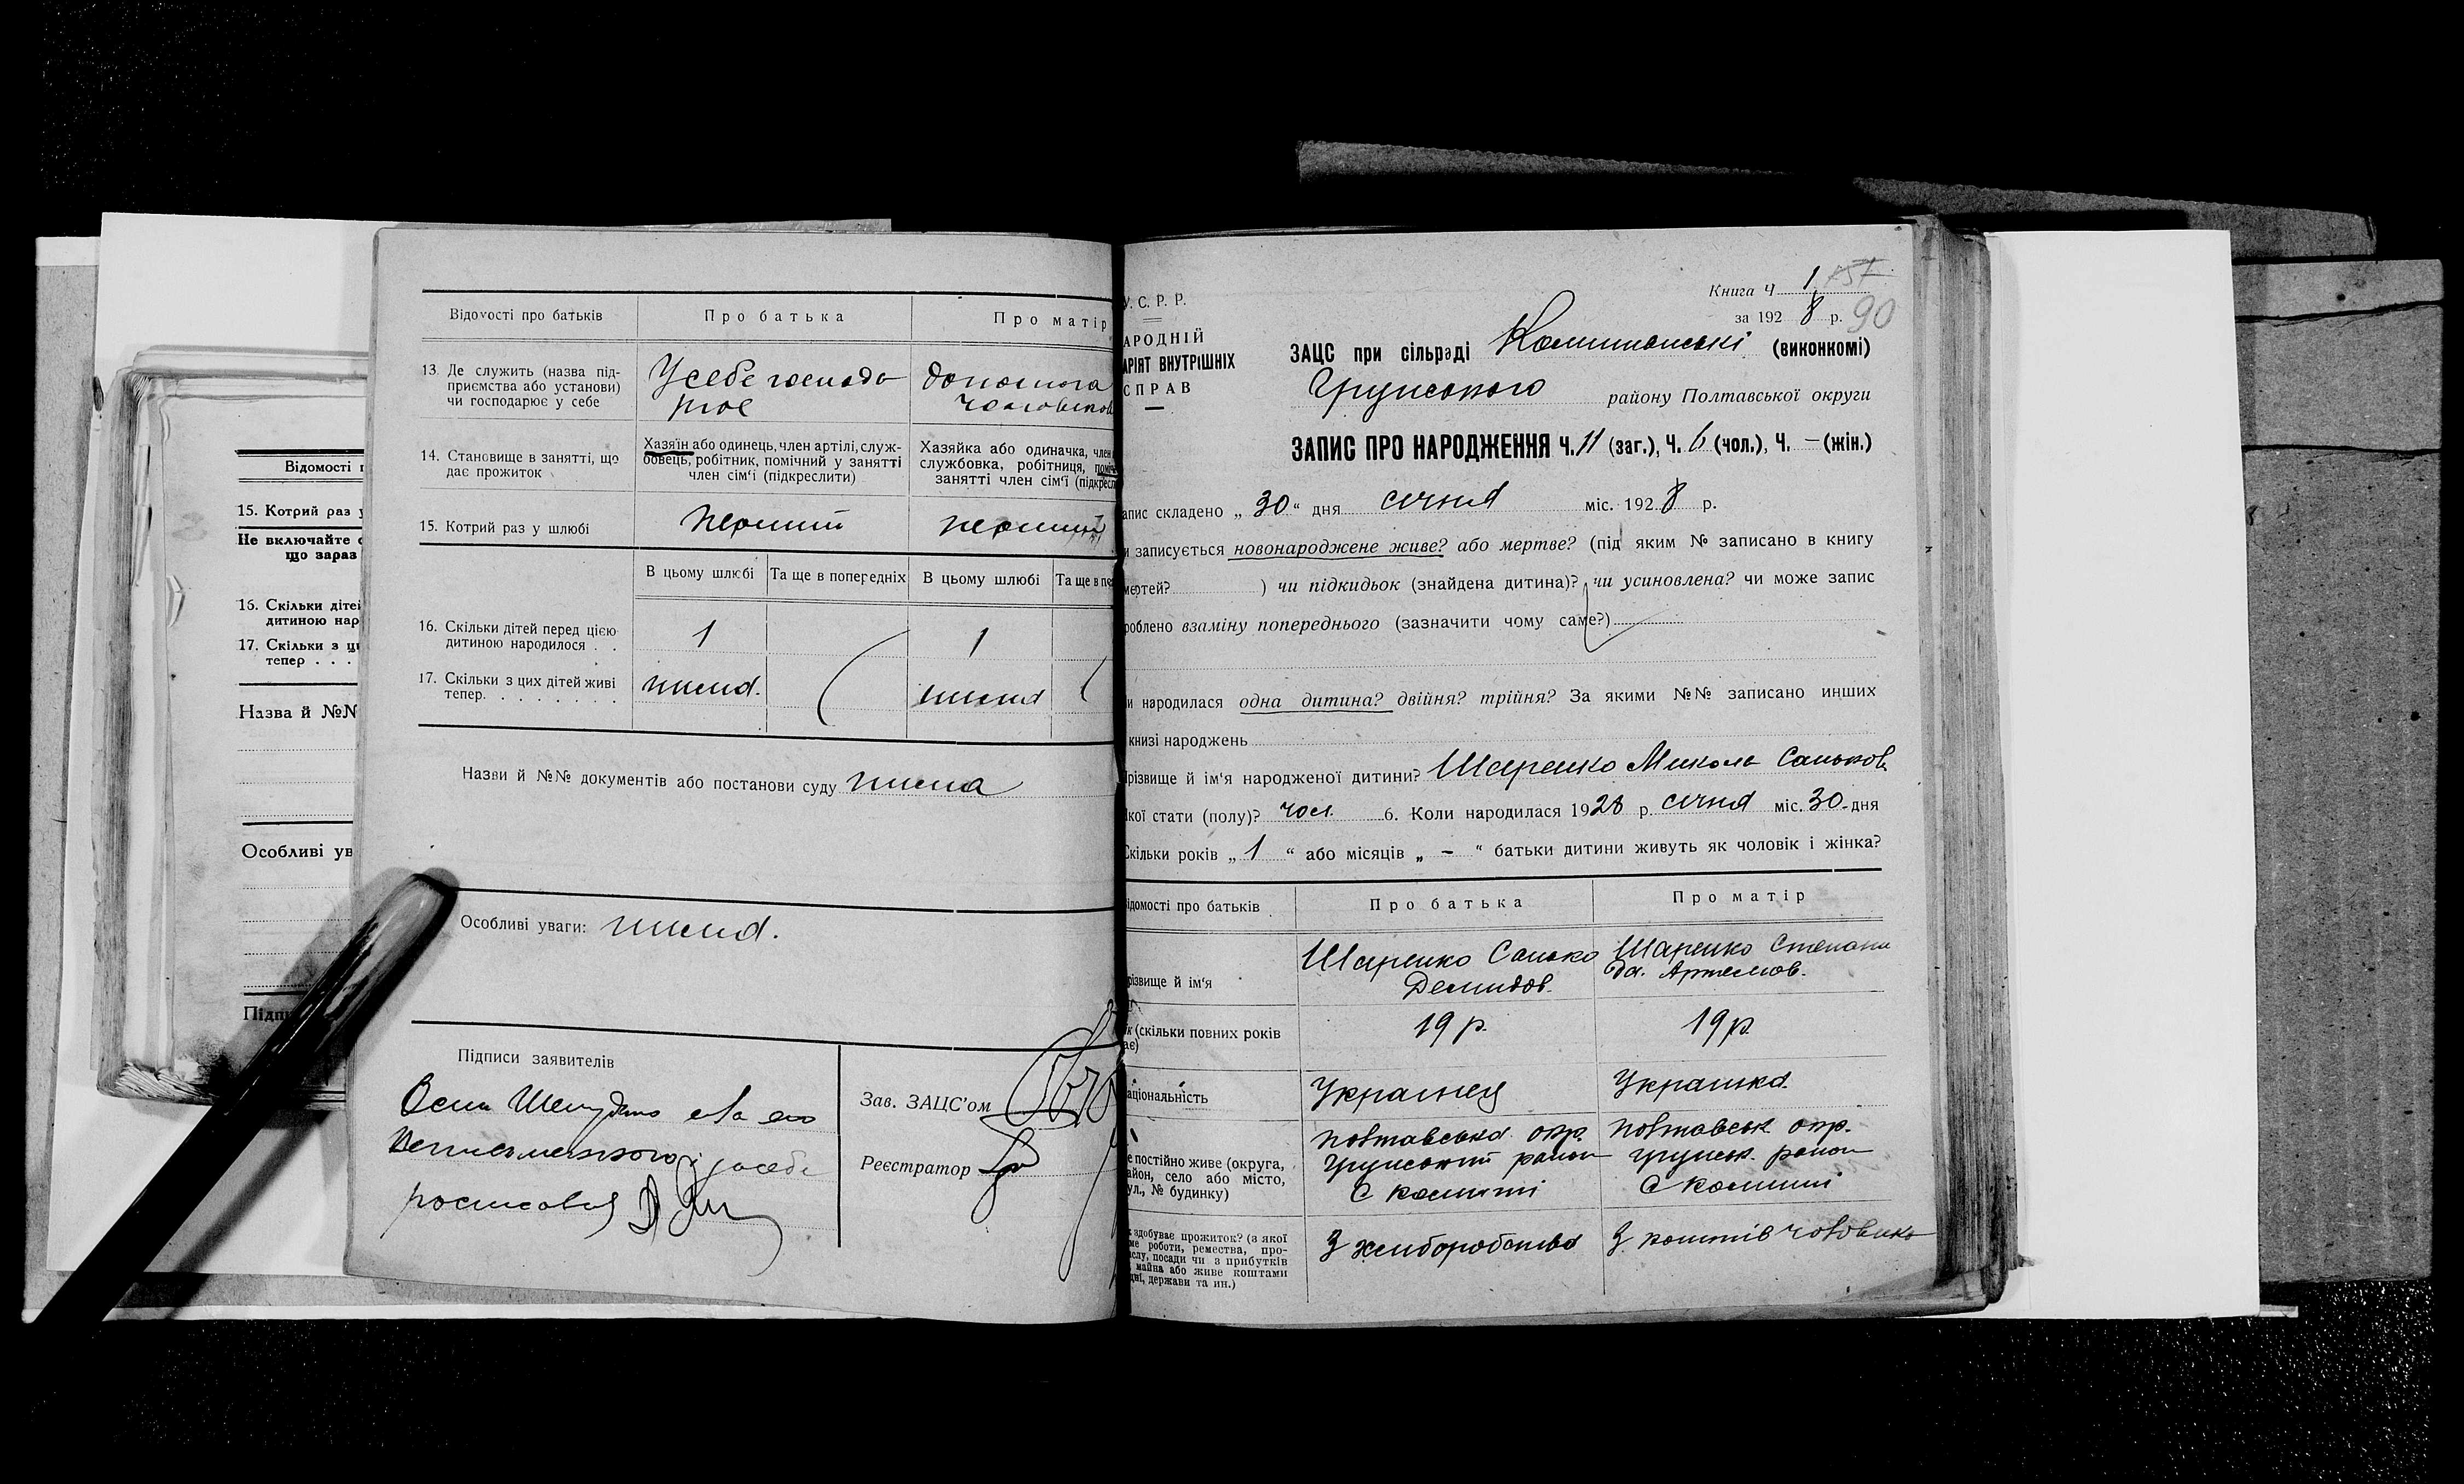 Відомості п
15. Котрий раз у
Не включайте
що зараз
16. Скільки дітей
дитиною нар
17. Скільки з ц
тепер . . .
Назва й №№
Особливі ув
Підп
Відомості про батьків
Про батька
Про матір
13. Де служить (назва під-
приємства або установи)
чи господарює у себе
У себе господа
рює
допомога
чоловікові
14. Становище в занятті, що
дає прожиток
Хазяїн або одинець, член артілі, служ-
бовець, робітник, помічний у занятті
член сім'ї (підкреслити)
Хазяйка або одиначка, член
службовка, робітниця, поміч
занятті член сім'ї (підкресл
15. Котрий раз у шлюбі
перший
перший
В цьому шлюбі
Та ще в попередніх
В цьому шлюбі
Та ще в по
16. Скільки дітей перед цією
дитиною народилося . .
1
1
17. Скільки з цих дітей живі
тепер. . . . . . . .
нима.
нима
Назви й №№ документів або постанови суду нима
Особливі уваги: нима.
Підписи заявителів
росписався
Зав. ЗАЦС'ом
Реєстратор
У. С. Р. Р.
АРОДНІЙ
АРІЯТ ВНУТРІШНІХ
СПРАВ
Книга Ч 1
за 1928 р. 90
ЗАЦС при сільраді Комишанські (виконкомі)
Грунського району Полтавської округи
ЗАПИС ПРО НАРОДЖЕННЯ Ч. 11 (заг.), Ч. 6 (чол.), Ч. — (жін.)
апис складено „ 30 “ дня січня міс. 1928 р.
и записується новонароджене живе? або мертве? (під яким № записано в книгу
мертей? ) чи підкидьок (знайдена дитина)? чи усиновлена? чи може запис
роблено взаміну попереднього (зазначити чому саме?)
и народилася одна дитина? двійня? трійня? За якими №№ записано инших
книзі народжень
Прізвище й ім'я народженої дитини? Шаренко Микола Саньков
кої стати (полу)? чол. 6. Коли народилася 1928 р. січня міс. 30-дня
Скільки років „ 1 “ або місяців „ - “ батьки дитини живуть як чоловік і жінка?
ідомості про батьків
Про батька
Про матір
різвище й ім'я
Шаренко Санько
Демидов.
Шаренко Степани
да. Артемов.
к (скільки повних років
ає)
19 р.
19 р.
аціональність
Українец
Українка
е постійно живе (округа,
айон, село або місто,
ул., № будинку)
Полтавська окр.
Грунський район
С Комиші
Полтавськ. окр.
Грунськ. район
С Комиші
здобуває прожиток? (з якої
ме роботи, ремества, про-
слу, посади чи з прибутків
майна або живе коштами
дні, держави та ин.)
З хліборобства
З коштів чоловіка